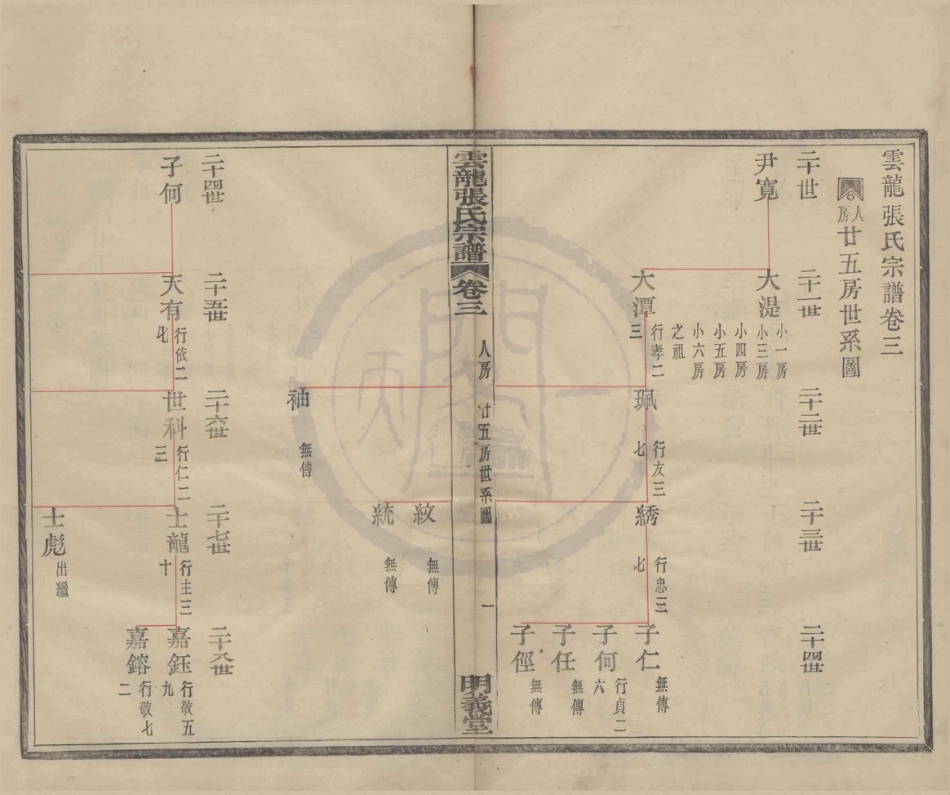 雲龍張氏宗譜卷三
人房廿五房世系圖
二十世
二十一世
二十二世
二十三世
二十四世
尹寬
大湜
小一房
小三房
小四房
小五房
小六房
之祖
大潭
行孝二
三
珮
行友三
七
綉
行忠三
七
子仁
無傳
子何
行貞二
六
子任
無傳
子俓
無傳
雲龍張氏宗譜
卷三
人房
廿五房世系圖
一
明義堂
紋
無傳
統
無傳
袖
無傳
二十四世
二十五世
二十六世
二十七世
二十八世
子何
天有
行依二
七
世科
行仁二
三
士龍
行主三
十
嘉鈺
行敬五
九
嘉鎔
行敬七
二
士彪
出繼